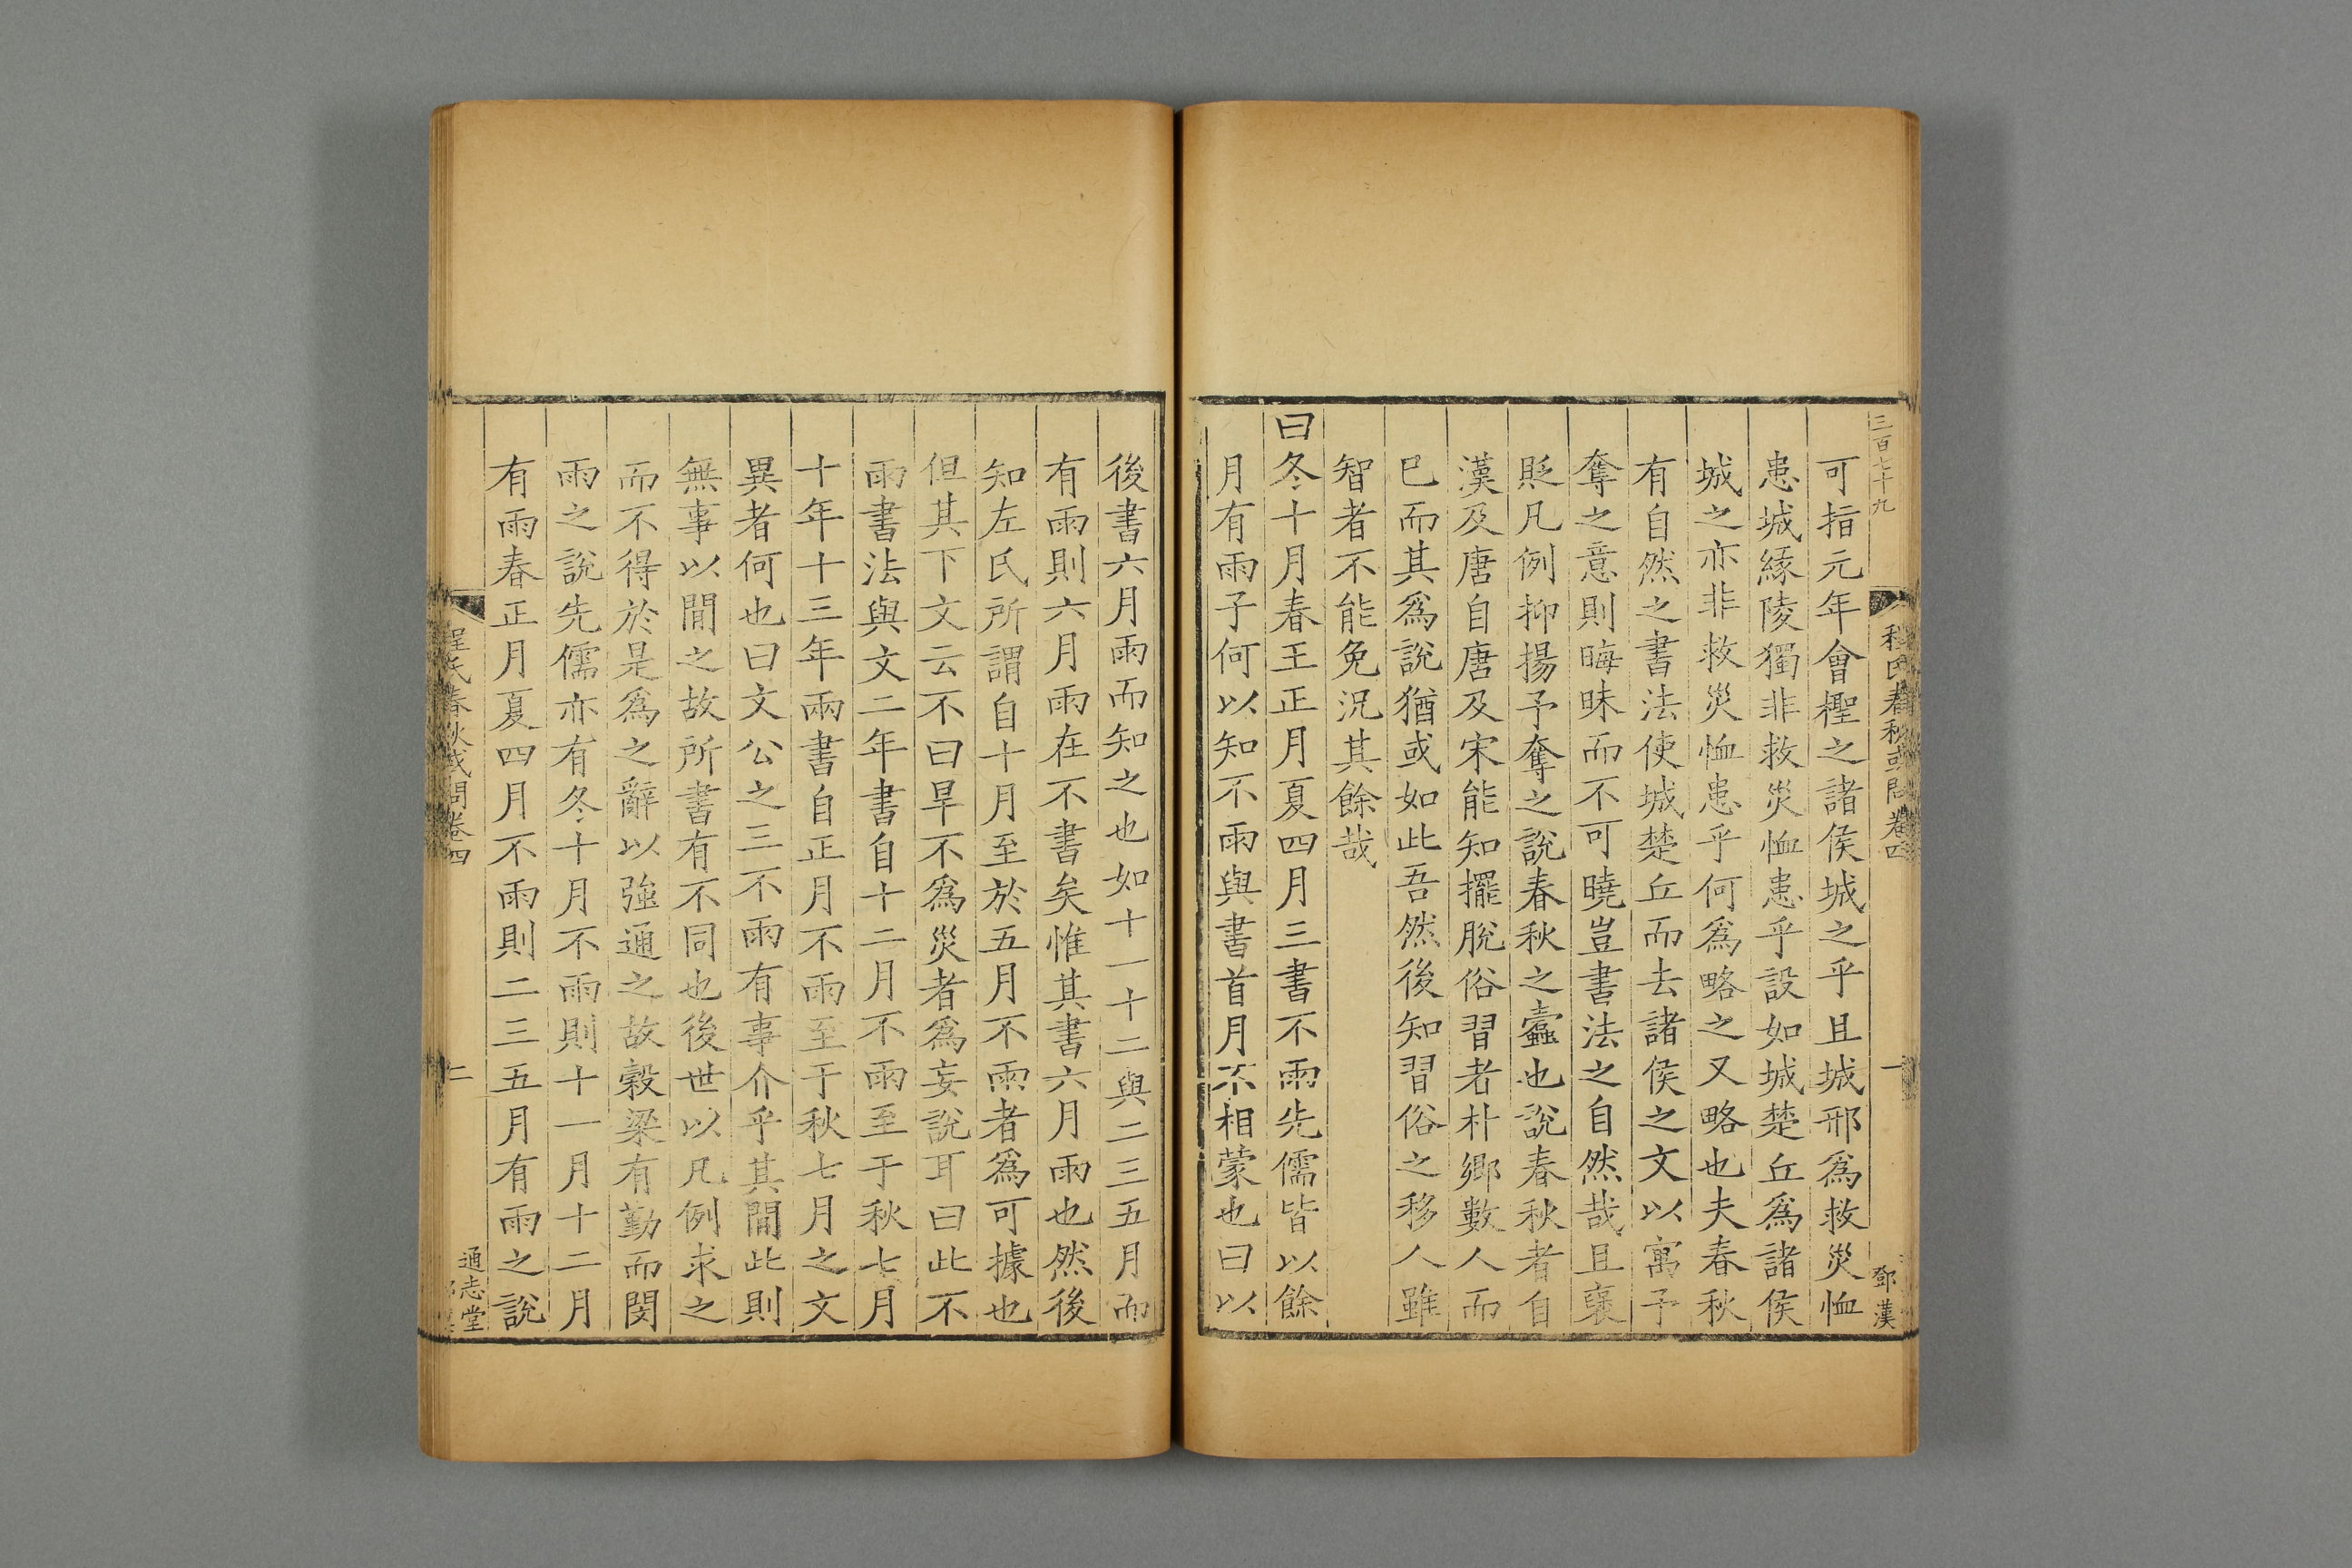 三百七十九
程氏春秋或問卷四
一
鄧漢
可指元年會檉之諸侯城之乎且城邢爲救災恤
患城緣陵獨非救災恤患乎設如城楚丘爲諸侯
城之亦非救災恤患乎何爲略之又略也夫春秋
有自然之書法使城楚丘而去諸侯之文以寓予
奪之意則晦昧而不可曉豈書法之自然哉且襃
貶凡例抑揚予奪之說春秋之蠹也說春秋者自
漢及唐自唐及宋能知擺脫俗習者朴鄉數人而
已而其爲說猶或如此吾然後知習俗之移人雖
智者不能免況其餘哉
曰冬十月春王正月夏四月三書不雨先儒皆以餘
月有雨子何以知不雨與書首月不相蒙也曰以
後書六月雨而知之也如十一十二與二三五月而
有雨則六月雨在不書矣惟其書六月雨也然後
知左氏所謂自十月至於五月不雨者爲可據也
但其下文云不曰旱不爲災者爲妄說耳曰此不
雨書法與文二年書自十二月不雨至于秋七月
十年十三年兩書自正月不雨至于秋七月之文
異者何也曰文公之三不雨有事介乎其間此則
無事以間之故所書有不同也後世以凡例求之
而不得於是爲之辭以強通之故穀梁有勤而閔
雨之說先儒亦有冬十月不雨則十一月十二月
有雨春正月夏四月不雨則二三五月有雨之說
程氏春秋或問卷四
二
通志堂